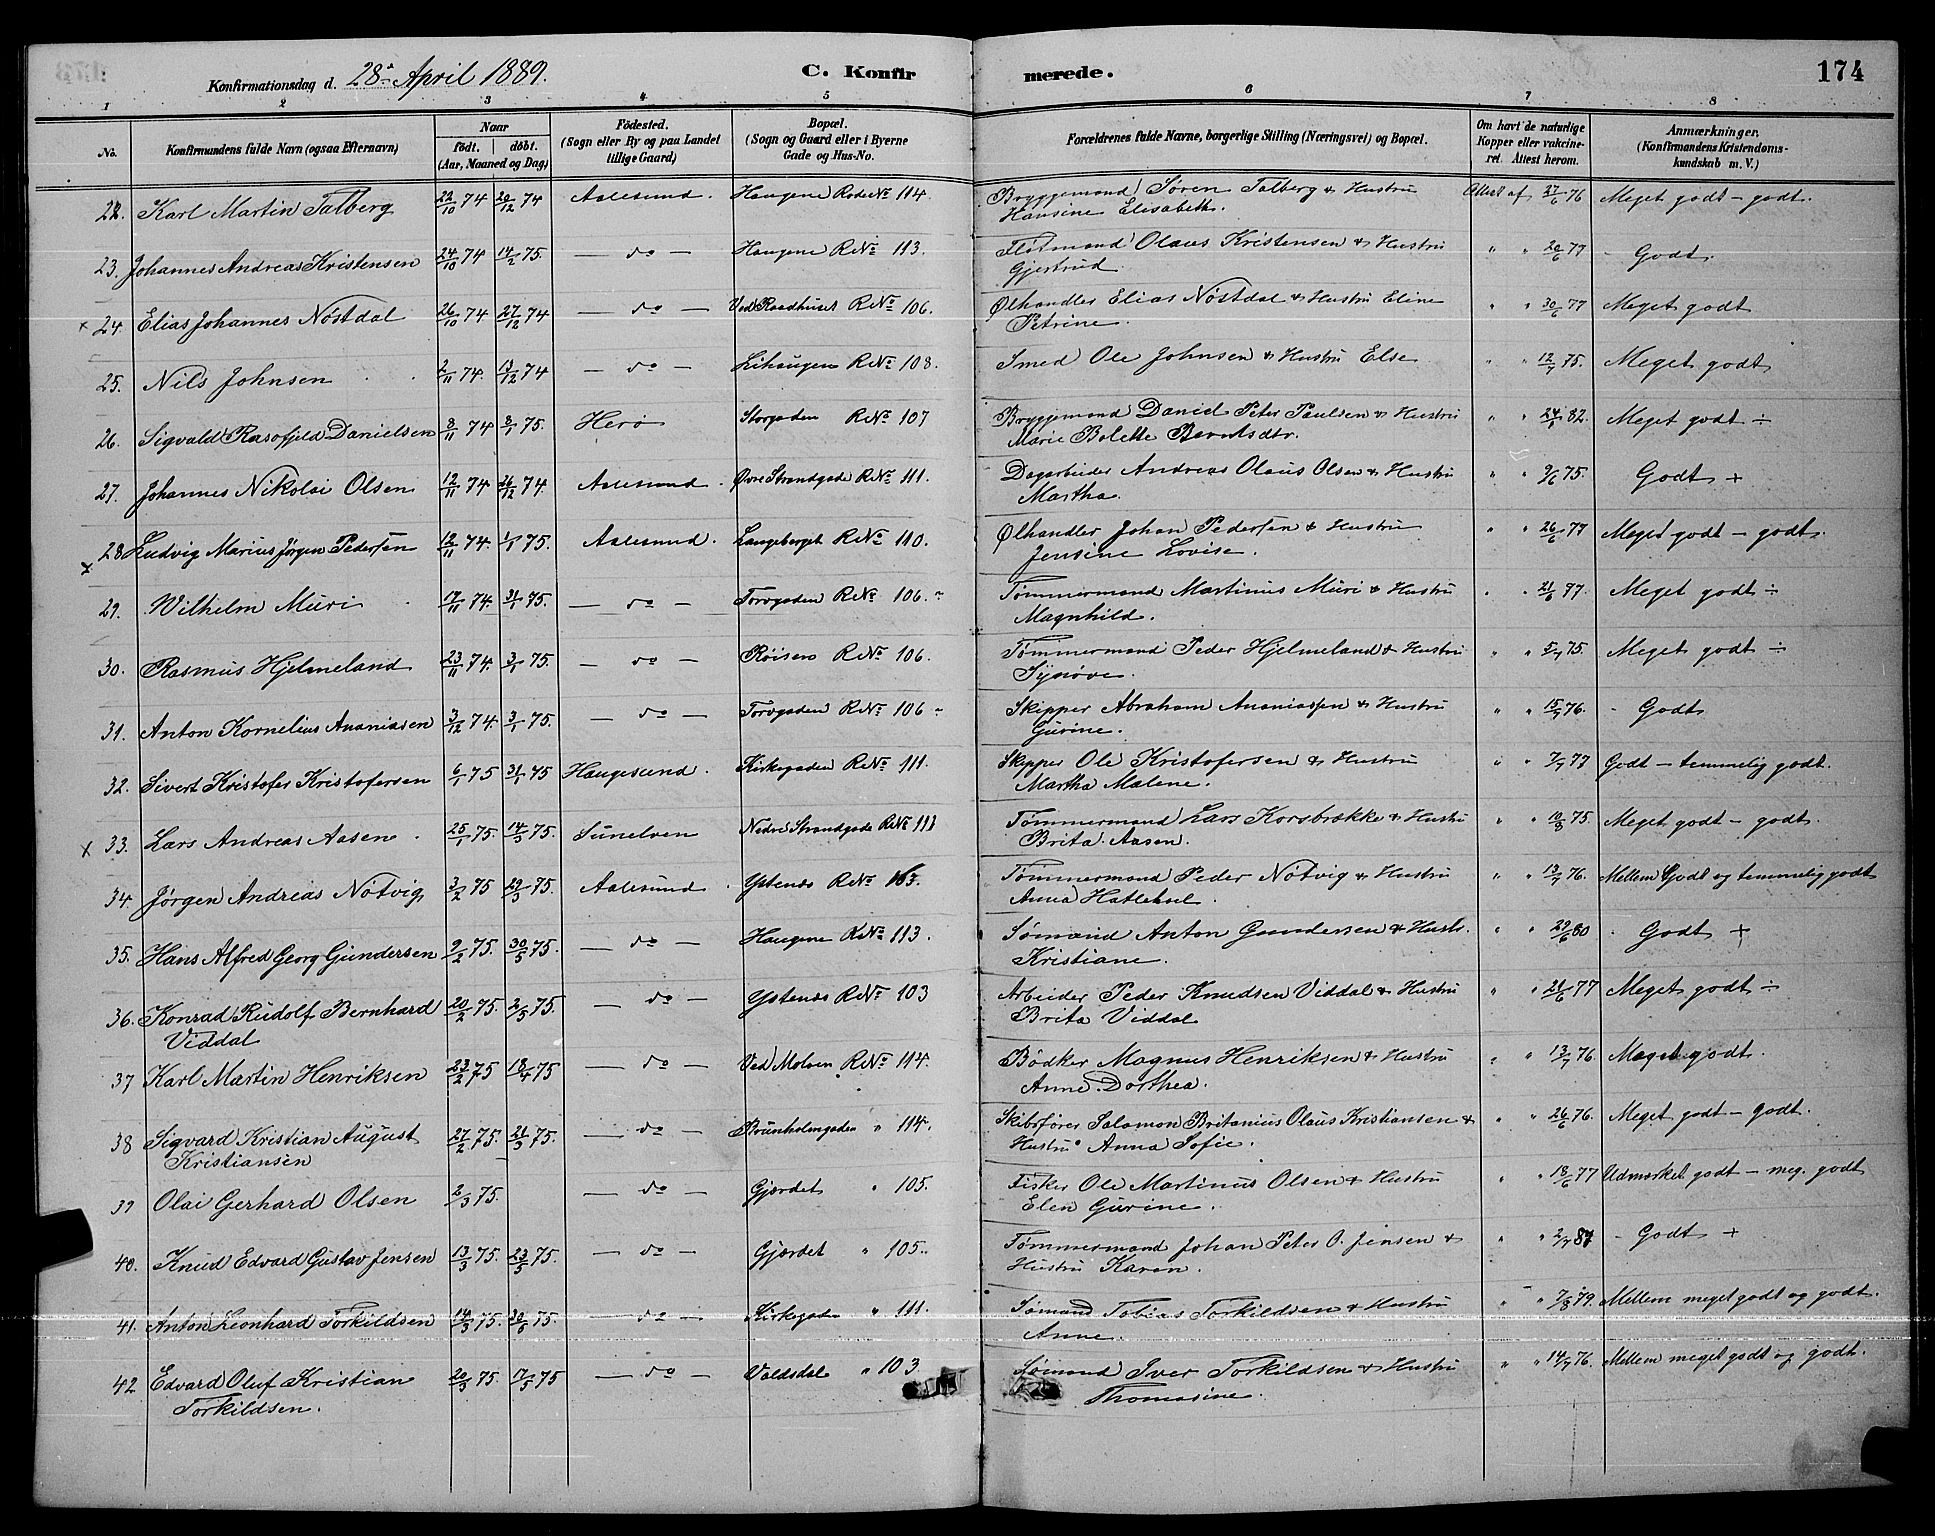 Konfirmationsdag d. 28de April 1889. C. Konfirmerede. 174
1 2 3 4 5 6 7 8
No. Konfirmandens fulde Navn (ogsaa Efternavn) Naar födt. döbt. (Aar, Maaned og Dag) Födested. (Sogn eller By og paa Landet tillige Gaard) Bopæl. (Sogn og Gaard eller i Byerne Gade og Hus-No. Forældrenes fulde Navne, borgerlige Stilling (Næringsvei) og Bopæl. Om havt de naturlige Kopper eller vakcineret. Attest herom. Anmærkninger. (Konfirmandens Kristendomskundskab m. V.)
22. Karl Martin Talberg 22/10 74 20/12 74 Aalesund. Haugene Rode No 114. Bryggemand Søren Talberg & Hustru Attest af 27/6 76 Meget godt - godt.
Hansine Elisabeth.
23. Johannes Andreas Kristensen 24/10 74 14/2 75. — do — Haugene R No 113. Flødmand Olaus Kristensen & Hustru " " 20/6 77 - Godt.
Gjertrud.
x 24. Elias Johannes Nöstdal 26/10 74 27/12 74 — do — Ved Raadhuset R No 106. Ølhandler Elias Nöstdal & Hustru Eline " " 30/6 77 Meget godt
Petrine.
25. Nils Johnsen 2/11 74. 13/12 74 — do — Lihaugen R No 108. Smed Ole Johnsen & Hustru Else " " 12/7 75. Meget godt
26. Sigvald Danielsen 8/11 74 8/1 75. Herö Storgaden R No 107 Bryggemand Daniel Peter Paulsen & Hustru " " 24/1 82. Meget godt ÷
Marie Bolette Berntsdtr.
27. Johannes Nikolai Olsen 12/11 74 26/12 74. Aalesund. Øvre Strandgade R No 111. Dagarbeider Andreas Olaus Olsen & Hustru " " 9/6 75. Godt +
Martha.
x 28 Ludvig Marius Jørgen Pedersen 12/11 74. 1/1 75. Aalesund. Langeberget R No 110. Ølhandler Johan Pedersen & Hustru " " 26/6 77 Meget godt - godt.
Jensine Lovise.
29. Wilhelm Muri 17/11 74. 31/1 75. — do — Torvgaden R No 106. Tømmermand Martinus Muri & Hustru " " 21/6 77. Meget godt ÷
Magnhild.
30. Rasmus Hjelmeland 23/11 74. 3/1 75. — do — Röisen R No 106. Tømmermand Peder Hjelmeland & Hustru " " 5/7 75. Meget godt ÷
Synöve.
31. Anton Kornelius Ananiasen 3/12 74. 3/1 75. — do — Torvgaden R No 106 Skipper Abraham Ananiassen & Hustru " " 15/7 76. - Godt
Gurine.
32. Sivert Kristofer Kristofersen 6/1 75 31/1 75 Haugesund. Kirkegaden R No 111. Skipper Ole Kristofersen & Hustru " " 7/7 77 Godt - temmelig godt.
Martha Malene.
x 33. Lars Andreas Aasen 25/1 75. 14/3 75. Sunelven Nedre Strandgade R No 111 Tømmermand Lars Korsbrække & Hustru " " 10/8 75. Meget godt - godt.
Brita Aasen.
34. Jørgen Andreas Nötvig 3/2 75 29/3 75. Aalesund. Ystenes R No 103. Tømmermand Peder Nötvig & Hustru " " 13/7 76. Mellem Godt og temmelig godt
Anna Hatlehol.
35. Hans Alfred Georg Gundersen 9/2 75. 30/5 75. — do — Haugene R No 113. Sømand Anton Gundersen & Hustr. " " 29/6 80 - Godt +
Kristiane.
36. Konrad Rudolf Bernhard 20/2 75. 2/5 75. — do — Ystenes R No 103 Arbeider Peder Knudsen Viddal & Hustru " " 21/6 77 Meget godt ÷
Viddal Brita Viddal
37 Karl Martin Henriksen 23/2 75 18/4 75 — do — Ved Molven R No 114. Bødker Magnus Henriksen & Hustru " " 13/7 76 Meget godt.
Anne Dorthea.
38 Sigvard Kristian August 27/2 75. 21/3 75. — do — Brunholmgaden " 114. Skibsfører Salomon Britanius Olaus Kristiansen & " " 26/6 76. Meget godt - godt.
Kristiansen Hustru Anna Sofie.
39 Olai Gerhard Olsen 2/3 75. — do — Gjærdet " 105. Fisker Ole Martinus Olsen & Hustru " " 18/6 77 Udmærket godt - meg. godt
Elen Gurine.
40. Knud Edvard Gustav Jensen 13/3 75. 23/5 75. — do — Gjærdet " 105. Tømmermand Johan Peter O. Jensen & " " 2/7 87 - Godt +
Hustru Karen.
41. Anton Leonhard Torkildsen 14/3 75. 30/5 75. — do — Kirkegaden " 111. Sømand Tobias Torkildsen & Hustru " " 7/8 79. Mellem meget godt og godt.
Anne.
42 Edvard Oluf Kristian 20/3 75. 7/5 75 — do — Voldsdal " 103. Sømand Iver Torkildsen & Hustru " " 14/7 76. Mellem meget godt og godt.
Torkildsen. Thomasine.